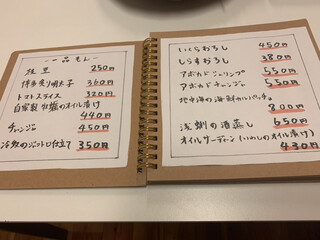 一品もん
枝豆 250円
博多炙り明太子 360円
トマトスライス 320円
自家製 牡蠣のオイル漬け
440円
チャンジャ 450円
冷奴のジェノバ仕立て 350円
いくらおろし 450円
しらすおろし 380円
アボカドシュリンプ 550円
アボカドチャンジャ 550円
地中海の海鮮カルパッチョ
800円
浅蜊の酒蒸し 650円
オイルサーディン(いわしのオイル漬け)
430円